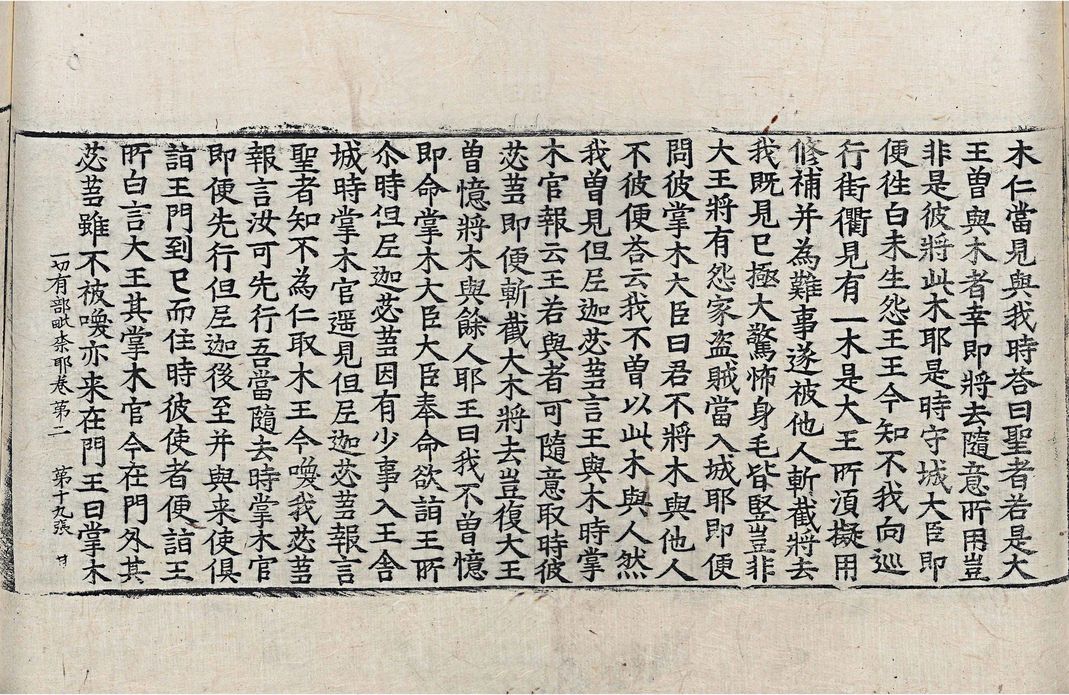 木仁當見與我時荅曰聖者若是大
王曾與木者幸即將去隨意所用豈
非是彼將此木耶是時守城大臣即
便徃白未生怨王王今知不我向巡
行街衢見有一木是大王所湏擬用
修補并為難事遂被他人斬截將去
我既見已極大驚怖身毛皆竪豈非
大王將有怨家盗賊當入城耶即便
問彼掌木大臣曰君不將木與他人
不彼便荅云我不曾以此木與人然
我曾見但尼迦苾蒭言王與木時掌
木官報云王若與者可隨意取時彼
苾蒭即便斬截大木將去豈復大王
曾憶將木與餘人耶王曰我不曾憶
即命掌木大臣大臣奉命欲詣王所
尒時但尼迦苾蒭因有少事入王舍
城時掌木官遥見但尼迦苾蒭報言
聖者知不為仁取木王今喚我苾蒭
報言汝可先行吾當隨去時掌木官
即便先行但尼迦後至并與来使俱
詣王門到已而住時彼使者便詣王
所白言大王其掌木官今在門外其
苾蒭雖不被喚亦来在門王曰掌木
一切有部毗柰耶卷第二 第十九張 甘